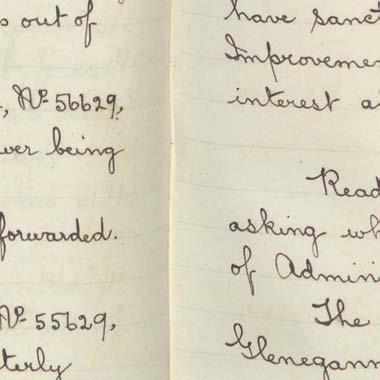 out of
, Nº 56629,
being
forwarded.
Nº 55629,
terly
have sanct
Improvemen
interest a
Read
asking wh
of Admini
The
Glenegann